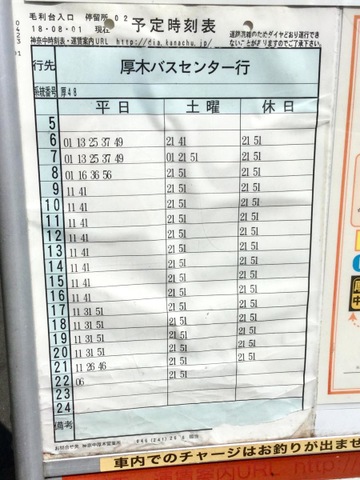 毛利台入口 停留所 02
18-08-01 現在
神奈中時刻表・運賃案内URL http://dia.kanachu.jp/
予定時刻表
行先 厚木バスセンター行
系統番号 厚48
平日 土曜 休日
5
6 01 13 25 37 49 21 41 21 51
7 01 13 25 37 49 01 21 51 21 51
8 01 16 36 56 21 51 21 51
9 11 41 21 51 21 51
10 11 41 21 51 21 51
11 11 41 21 51 21 51
12 11 41 21 51 21 51
13 11 41 21 51 21 51
14 11 41 21 51 21 51
15 11 41 21 51 21 51
16 11 41 21 51 21 51
17 11 31 51 21 51 21 51
18 11 31 51 21 51 21 51
19 11 31 51 21 51 21 51
20 11 31 51 21 51 21 51
21 11 26 46 21 51
22 06 21 51
23
24
備考
車内でのチャージはお釣りが出ませ